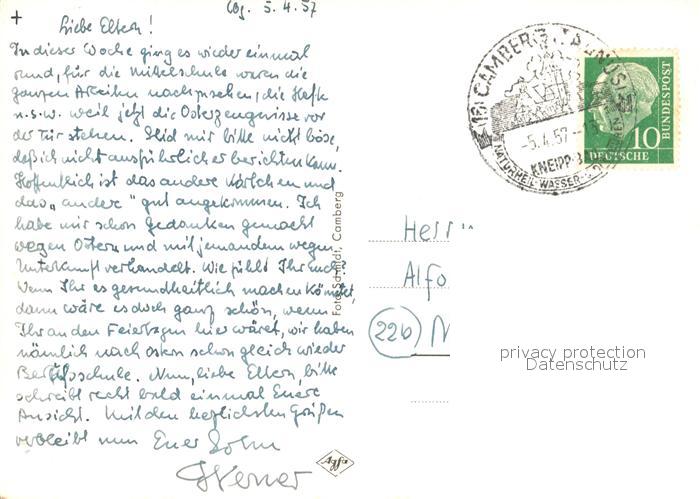 +
Cbg. 5.4.57
Liebe Eltern!
In dieser Woche ging es wieder einmal
rund, für die Mittelschule waren die
ganzen Arbeiten nachzusehen, die Hefte
u.s.w. weil jetzt die Osterzeugnisse vor
der Tür stehen. Seid mir bitte nicht böse,
daß ich nicht ausführlicher berichten kann.
Hoffentlich ist das andere Kärtchen und
das "andere" gut angekommen. Ich
habe mir schon Gedanken gemacht
wegen Ostern und mit jemandem wegen
Unterkunft verhandelt. Wie fühlt Ihr Euch?
Wenn Ihr es gesundheitlich machen könntet,
dann wäre es doch ganz schön, wenn
Ihr an den Feiertagen hier wäret, wir haben
nämlich nach Ostern schon gleich wieder
Berufsschule. Nun, liebe Eltern, bitte
schreibt recht bald einmal Eure
Ansicht. Mit den herzlichsten Grüßen
verbleibt nun Euer Sohn
Werner
Agfa
Foto Schmidt, Camberg
(16) CAMBERG (TAUNUS)
-5.4.57
KNEIPP
NATURHEIL-WASSER
10
DEUTSCHE
BUNDESPOST
Herrn
Alfo
(22b) M
privacy protection
Datenschutz